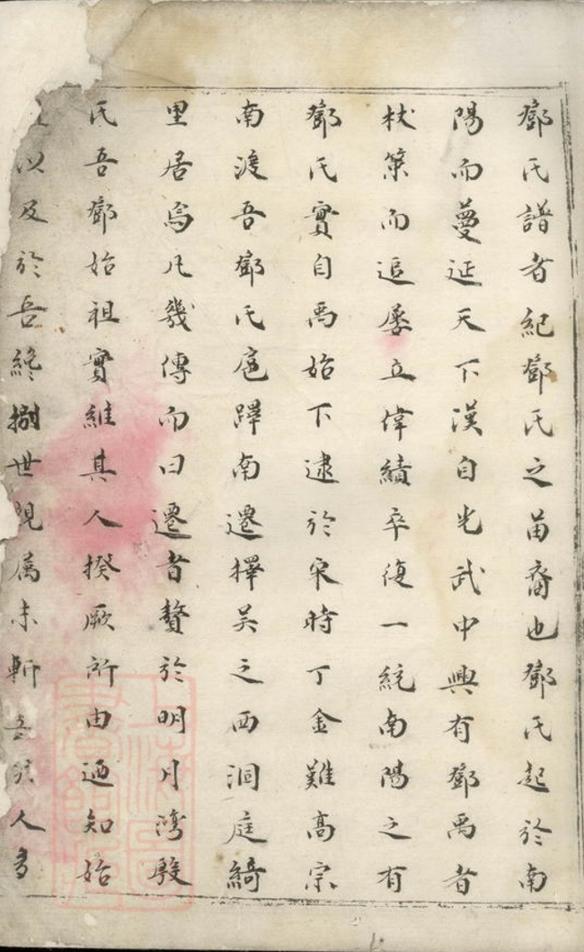 鄧氏譜者紀鄧氏之苗裔也鄧氏起於南
陽而蔓延天下漢自光武中興有鄧禹者
杖策而追屢立偉績卒復一統南陽之有
鄧氏實自禹始下逮於宋時丁金難高宗
南渡吾鄧氏扈蹕南遷擇吴之西洞庭綺
里居焉凡幾傳而曰遷者贅於明月灣殷
氏吾鄧始祖實維其人揆厥所由迺知始
以及於吾終捌世親属未斬吾族人多